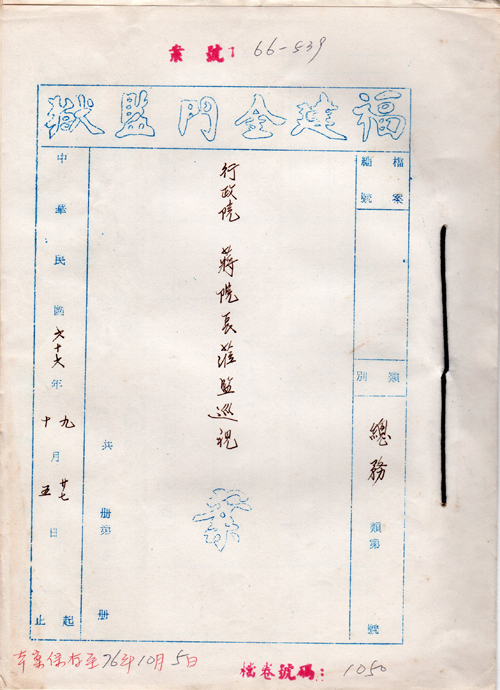 案號: 66-539
福建金門監獄
檔案
總號
類別
總務
類第
號
行政院 蔣院長蒞監巡視
案
共 冊第 冊
中華民國六十六年
九月廿七日起
十月五日止
本案保存至76年10月5日
檔卷號碼: 1050